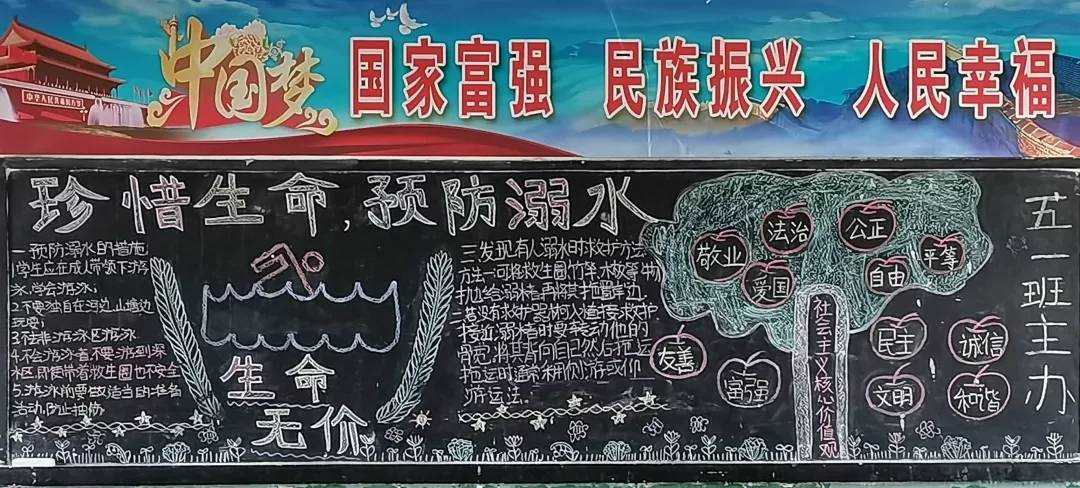 中国梦
国家富强 民族振兴 人民幸福
中华人民共和国万岁
珍惜生命,预防溺水
一预防溺水的措施
1学生应在成人带领下游
泳,学会游泳;
2.不要独自在河边、山塘边
玩耍;
3.不在非游泳区游泳
4.不会游泳者不要游到深
水区,即使带着救生圈也不安全
5.游泳前要做适当的准备
活动,防止抽筋
生命
无价
二发现有人溺水时救护方法
方法一:可将救生圈、竹竿、木板等物
抛给溺者,再将其拖至岸边
二若没有救护器材,入水
接近溺者时要转动他的
髋部,将其背向自己然后拖运
拖运时通常用侧泳或仰
泳运法.
敬业
法治
公正
平等
爱国
自由
友善
富强
民主
诚信
文明
和谐
社会主义核心价值观
五一班主办